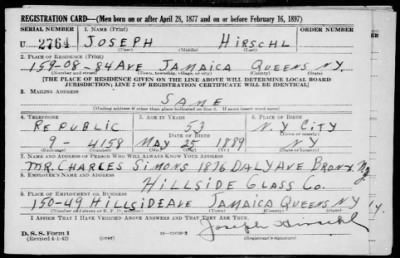 REGISTRATION CARD—(Men born on or after April 28, 1877 and on or before February 16, 1897)
SERIAL NUMBER 1. NAME (Print)
U 2764 JOSEPH HIRSCHL
(First) (Middle) (Last)
2. PLACE OF RESIDENCE (Print)
159-08-84 AVE JAMAICA QUEENS N.Y.
(Number and street) (Town, township, village, or city) (County) (State)
[THE PLACE OF RESIDENCE GIVEN ON THE LINE ABOVE WILL DETERMINE LOCAL BOARD
JURISDICTION; LINE 2 OF REGISTRATION CERTIFICATE WILL BE IDENTICAL]
3. MAILING ADDRESS
SAME
[Mailing address if other than place indicated on line 2. If same insert word same]
4. TELEPHONE 5. AGE IN YEARS 6. PLACE OF BIRTH
REPUBLIC 53 N.Y. CITY
DATE OF BIRTH (Town or county)
9-4158 MAY 25 1889 NY
(Exchange) (Number) (Mo.) (Day) (Yr.) (State or country)
7. NAME AND ADDRESS OF PERSON WHO WILL ALWAYS KNOW YOUR ADDRESS
MR. CHARLES SIMONS 1876 DALY AVE BRONX NY
8. EMPLOYER'S NAME AND ADDRESS
HILLSIDE GLASS CO.
9. PLACE OF EMPLOYMENT OR BUSINESS
150-49 HILLSIDE AVE JAMAICA QUEENS N.Y.
(Number and street or R. F. D. number) (Town) (County) (State)
I AFFIRM THAT I HAVE VERIFIED ABOVE ANSWERS AND THAT THEY ARE TRUE.
D. S. S. Form 1
(Revised 4-1-42)
Joseph Hirschl